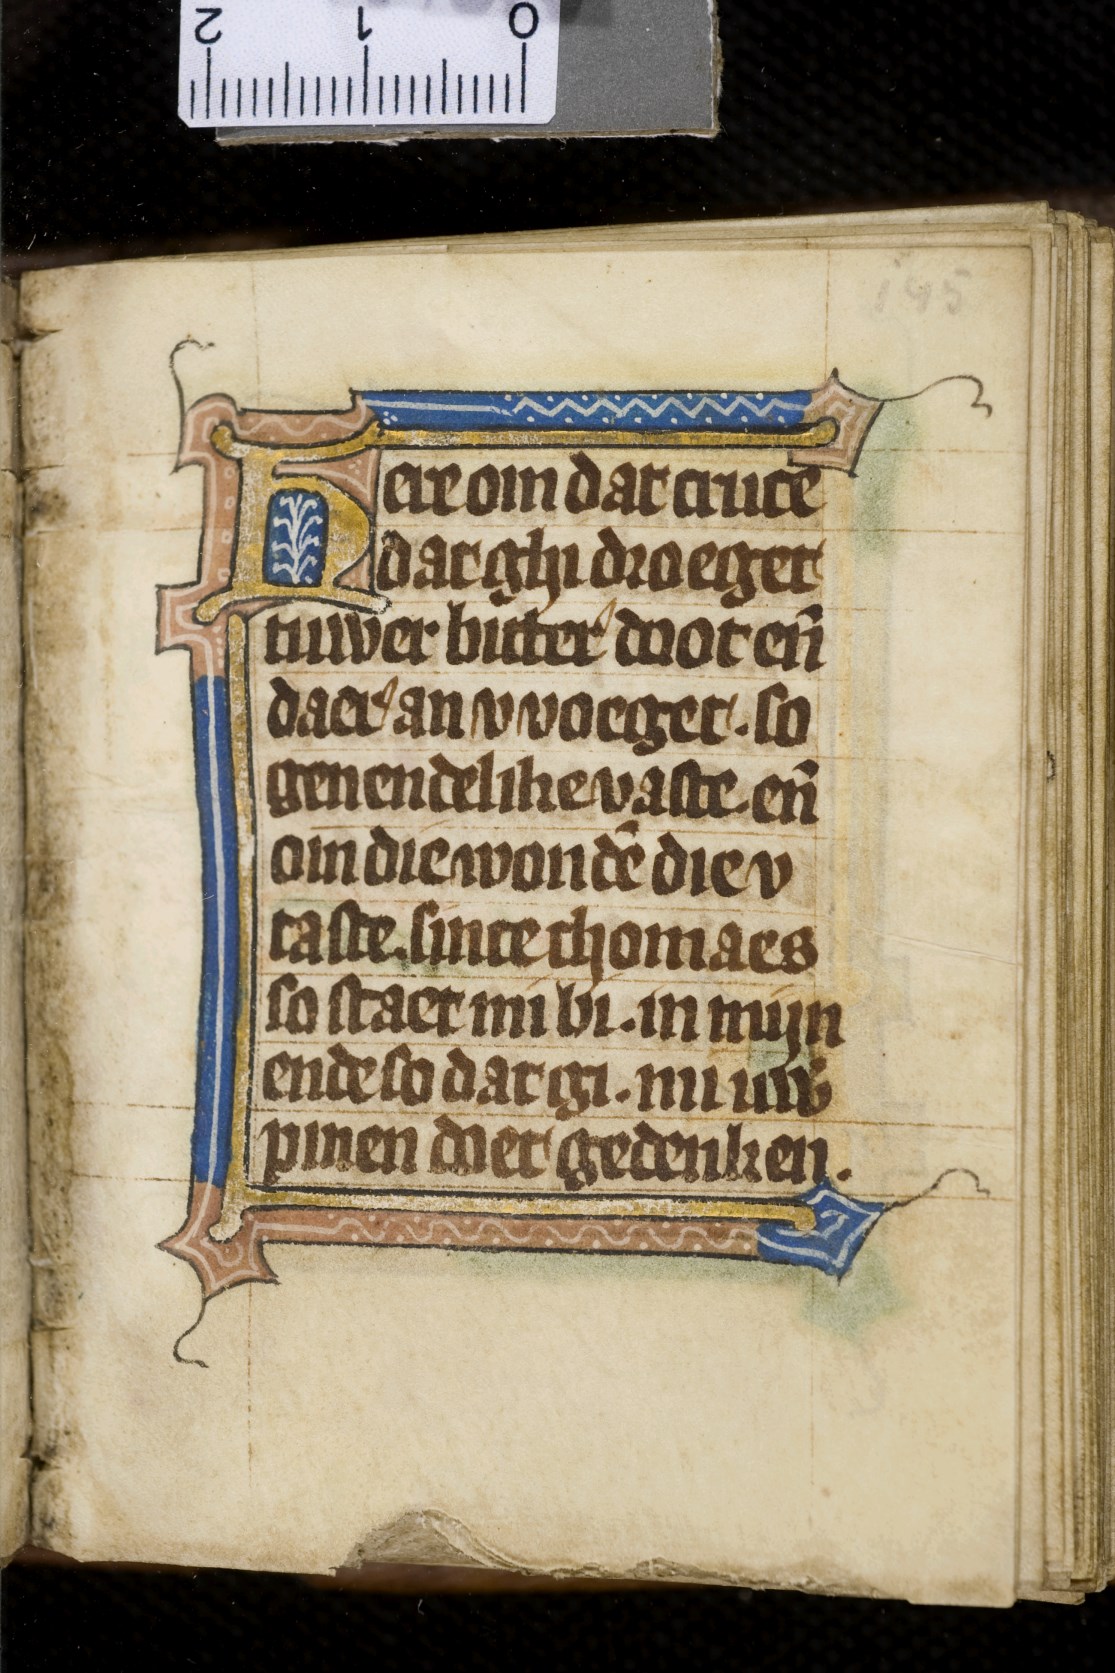 2 1 0
145
Here om dat cruce
dat ghi droeget
tuwer bitter doot en̄
daer an v voeget. so
genendelike vaste. en̄
om die wondē die v
taste. sinte thomaes
so staet mi bi. in mijn
ende so dat gi. mi uw̄
pinen doet gedenken.